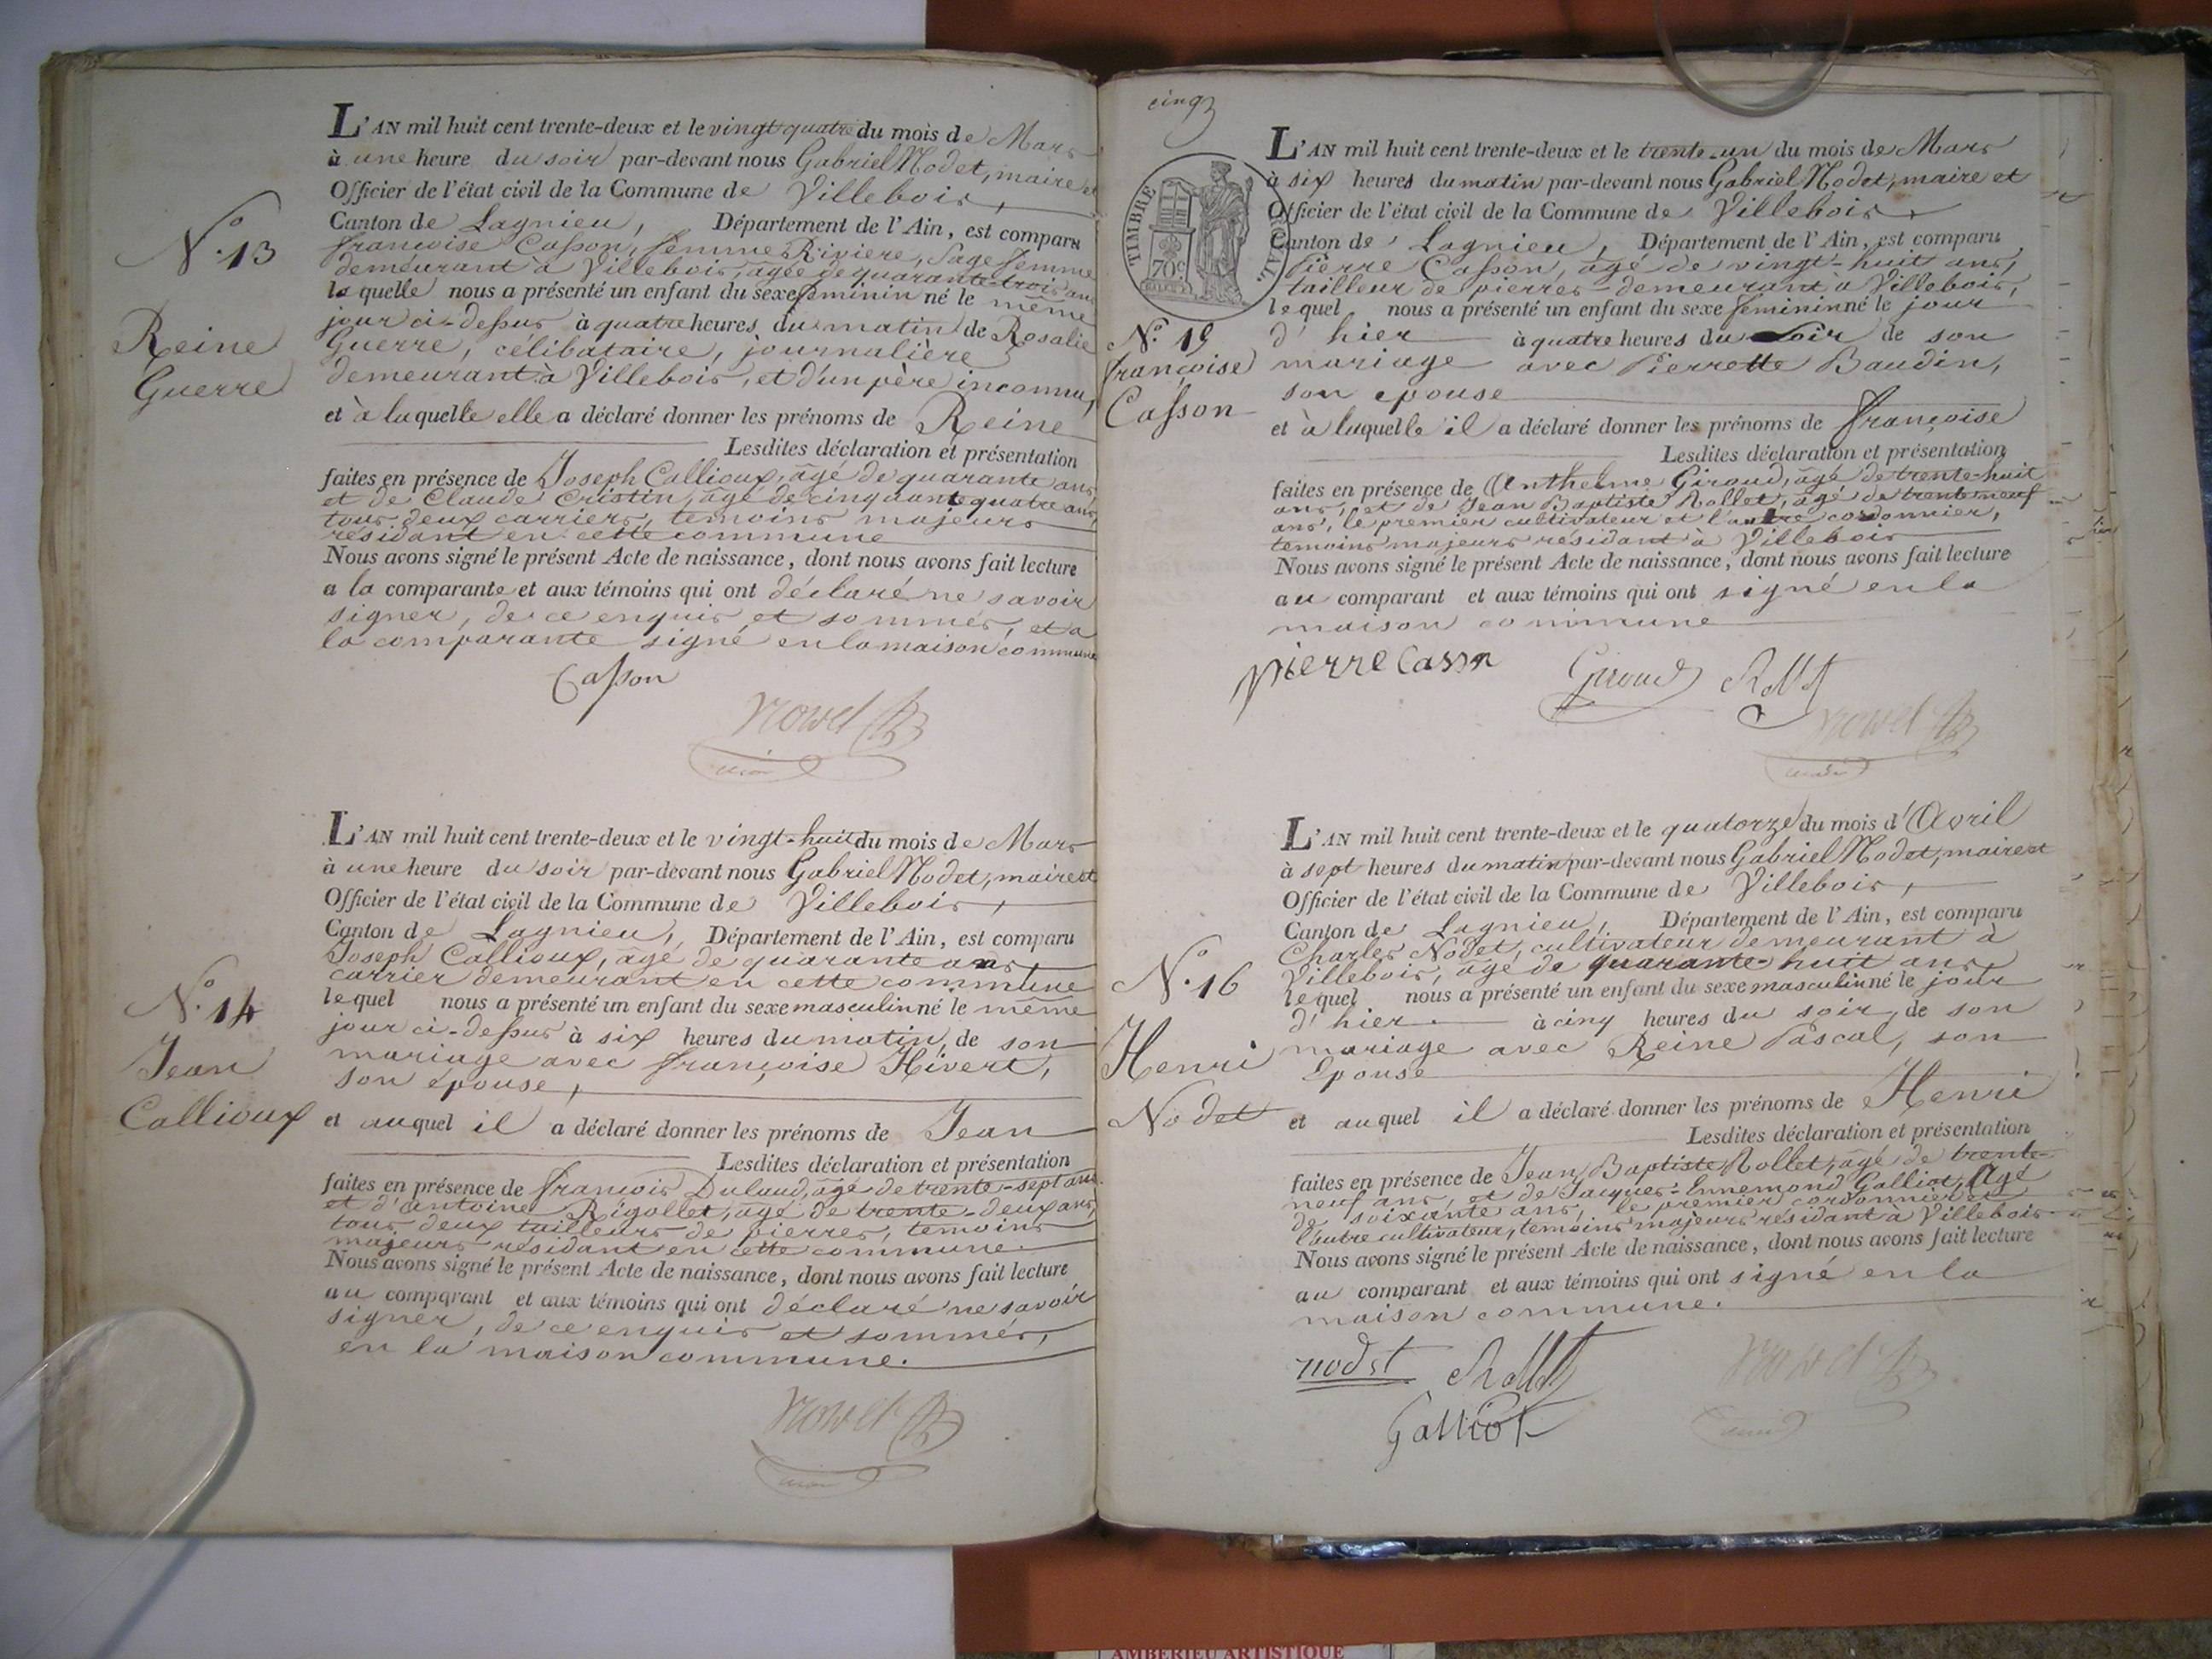 N.° 13
Reine
Guerre
L'AN mil huit cent trente-deux et le vingt quatre du mois de Mars
à une heure du soir par-devant nous Gabriel Nodet, maire et
Officier de l'état civil de la Commune de Villebois,
Canton de Lagnieu, Département de l'Ain, est comparu
françoise Casson, femme Riviere, Sage femme
demeurant à Villebois, âgée de quarante-trois ans
la quelle nous a présenté un enfant du sexe feminin né le même
jour ci-dessus à quatre heures du matin de Rosalie
Guerre, célibataire, journalière
demeurant à Villebois, et d'un père inconnu,
et à laquelle elle a déclaré donner les prénoms de Reine
Lesdites déclaration et présentation
faites en présence de Joseph Callioux, âgé de quarante ans,
et de Claude Cristin, âgé de cinquante quatre ans,
tous deux carriers, temoins majeurs
résidant en cette commune
Nous avons signé le présent Acte de naissance, dont nous avons fait lecture
a la comparante et aux témoins qui ont déclaré ne savoir
signer, de ce enquis et sommés, et a
la comparante signé en la maison commune
Casson
N.° 14
Jean
Callioux
L'AN mil huit cent trente-deux et le vingt-huit du mois de Mars
à une heure du soir par-devant nous Gabriel Nodet, maire et
Officier de l'état civil de la Commune de Villebois,
Canton de Lagnieu, Département de l'Ain, est comparu
Joseph Callioux, âgé de quarante ans,
carrier demeurant en cette commune
lequel nous a présenté un enfant du sexe masculin né le même
jour ci-dessus à six heures du matin, de son
mariage avec françoise Hivert,
son épouse,
et auquel il a déclaré donner les prénoms de Jean
Lesdites déclaration et présentation
faites en présence de françois Dulaud, âgé de trente-sept ans
et d'antoine Rigollet, âgé de trente-deux ans,
tous deux tailleurs de pierres, temoins
majeurs résidant en cette commune.
Nous avons signé le présent Acte de naissance, dont nous avons fait lecture
au comparant et aux témoins qui ont déclaré ne savoir
signer, de ce enquis et sommés,
en la maison commune.
cinq
TIMBRE ROYAL
70c
N.° 15
françoise
Casson
L'AN mil huit cent trente-deux et le trente-un du mois de Mars
à six heures du matin par-devant nous Gabriel Nodet, maire et
Officier de l'état civil de la Commune de Villebois
Canton de Lagnieu, Département de l'Ain, est comparu
Pierre Casson, âgé de vingt-huit ans,
tailleur de pierres demeurant à Villebois,
lequel nous a présenté un enfant du sexe feminin né le jour
d'hier à quatre heures du soir de son
mariage avec Pierrette Baudin,
son epouse
et à laquelle il a déclaré donner les prénoms de françoise
Lesdites déclaration et présentation
faites en présence de Anthelme Giroud, âgé de trente-huit
ans, et de Jean Baptiste Rollet, âgé de trente neuf
ans, le premier cultivateur et l'autre cordonnier,
temoins majeurs résidant à Villebois
Nous avons signé le présent Acte de naissance, dont nous avons fait lecture
au comparant et aux témoins qui ont signé en la
maison commune
pierre Casson Giroud Rollet
N.° 16
Henri
Nodet
L'AN mil huit cent trente-deux et le quatorze du mois d'Avril
à sept heures du matin par-devant nous Gabriel Nodet, maire et
Officier de l'état civil de la Commune de Villebois,
Canton de Lagnieu, Département de l'Ain, est comparu
Charles Nodet, cultivateur demeurant à
Villebois, âgé de quarante-huit ans,
lequel nous a présenté un enfant du sexe masculin né le jour
d'hier à cinq heures du soir, de son
mariage avec Reine Pascal, son
Epouse
et auquel il a déclaré donner les prénoms de Henri
Lesdites déclaration et présentation
faites en présence de Jean Baptiste Rollet, âgé de trente-
neuf ans, et de Jacques-Ennemond Galliot, Agé
de soixante ans, le premier cordonnier et
l'autre cultivateur, temoins majeurs résidant à Villebois
Nous avons signé le présent Acte de naissance, dont nous avons fait lecture
au comparant et aux témoins qui ont signé en la
maison commune.
nodet Rollet
Galliot
AMBERIEU ARTISTIQUE